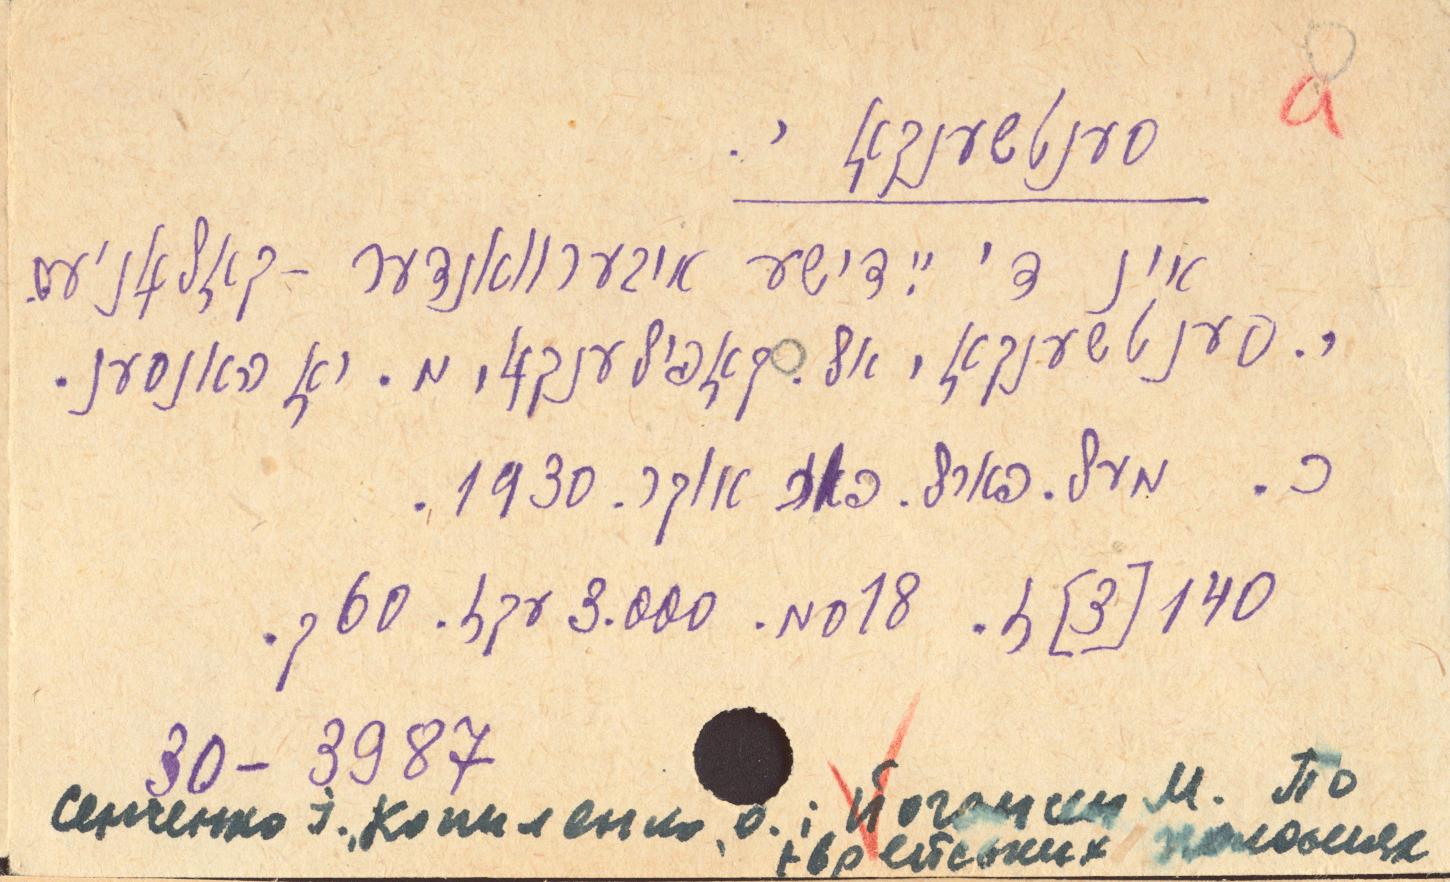 a
סענטשענקאָ י.
אין די ייִדישע איבערוואַנדער-קאָלאָניעס.
י. סענטשענקאָ, אל. קאָפּילענקאָ, מ. יאָהאנסען.
כ. מעל. פארל. פאר אוקר. 1930.
140 [3] ז. 18 סמ. 3.000 עקז. 60 ק.
30-3987
Сенченко І., Копиленко, О. і Йогансен М. По
єврейських колоніях